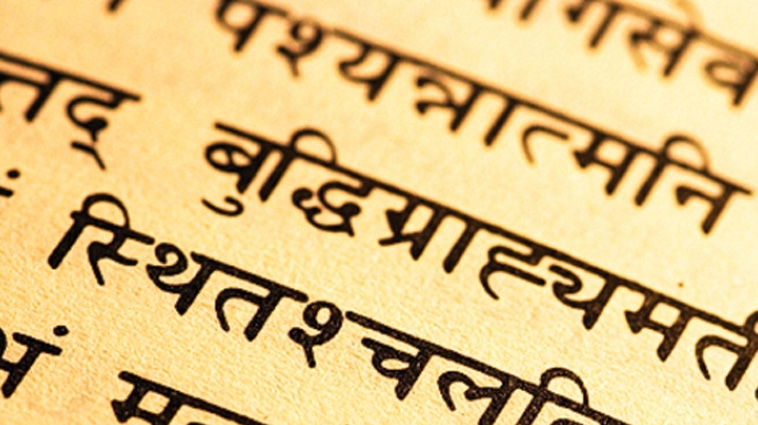 गसेव
पश्यन्नात्मनि
तद् बुद्धिग्राह्यमती
स्थितश्चल
भं